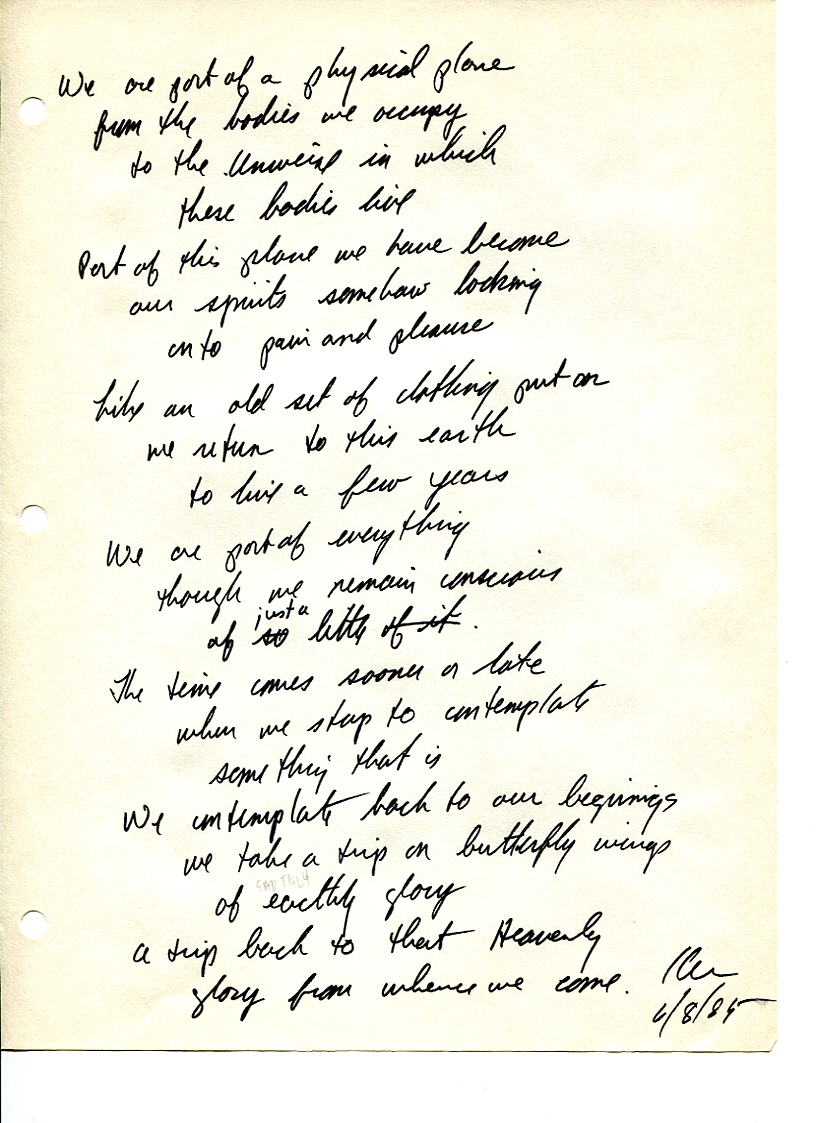 We are part of a physical plane
from the bodies we occupy
to the Universe in which
these bodies live
Part of this plane we have become
our spirits somehow locking
onto pain and pleasure
Like an old set of clothing put on
we return to this earth
to live a few years
We are part of everything
though we remain conscious
just a
of so little of it.
The time comes sooner or late
when we stop to contemplate
something that is
We contemplate back to our beginings
we take a trip on butterfly wings
EARTHLY
of earthly glory
a trip back to that Heavenly
glory from whence we come.
Ken
6/8/85